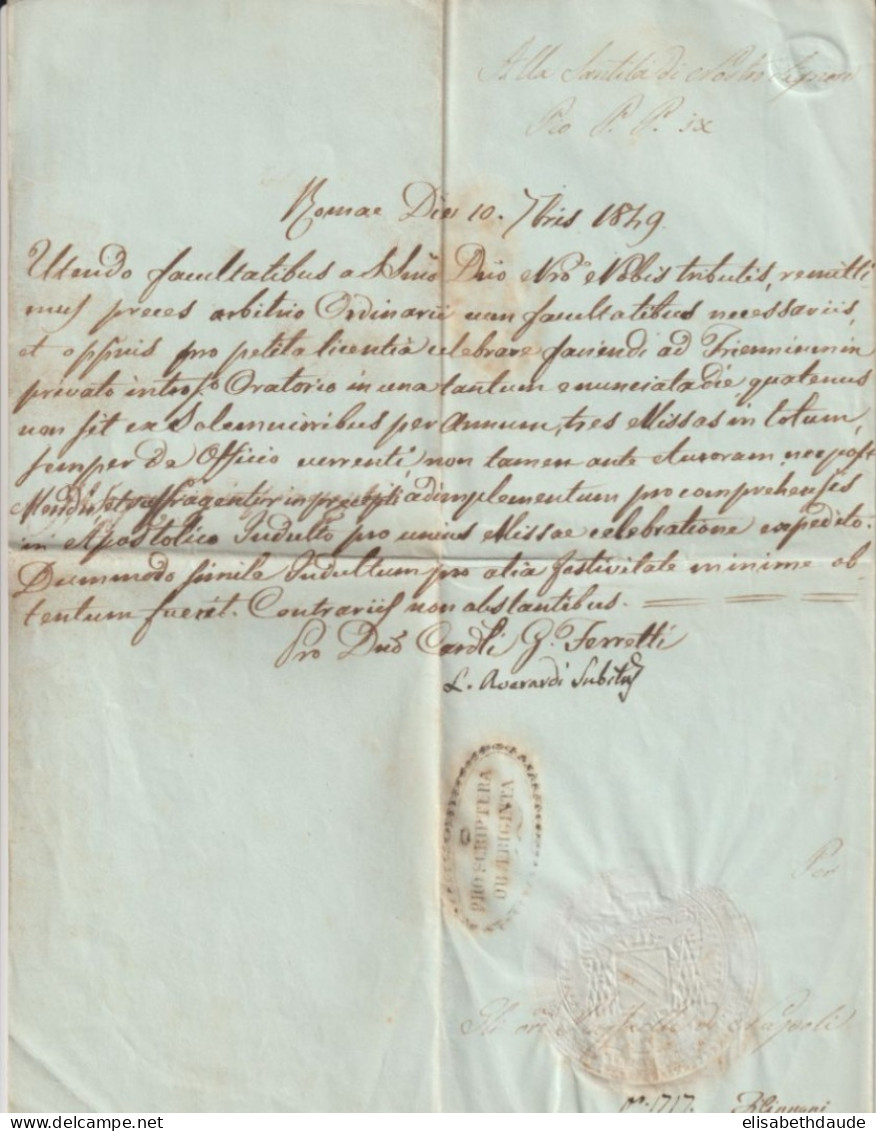 Alla Santità di Nostro Signore
Pio P. P. IX
Romae Die 10. 7bris 1849
Utendo facultatibus a SSmo Dno Nro Nobis tributis, remitti
mus preces arbitrio Ordinarii cum facultatibus necessariis,
et oppnis pro petita licentia celebrare faciendi ad Triennium in
privato introspo Oratorio in una tantum enunciata die quatenus
non sit ex Solemnioribus per Annum, tres Missas in totum,
semper de Officio currenti non tamen ante Auroram, nec post
Meridiem adimplementum pro comprehensis
in Apostolico Indulto pro unius Missae celebratione expedito.
Dummodo simile Indultum pro alia festivitate minime ob-
tentum fuerit. Contrariis non obstantibus.
Pro Dno Cardli G. Ferretti
L. Averardi Substus
PRO SCRIPTERA
OB ÆRIGINTA
Per
Gli di Napoli
no. 1717.